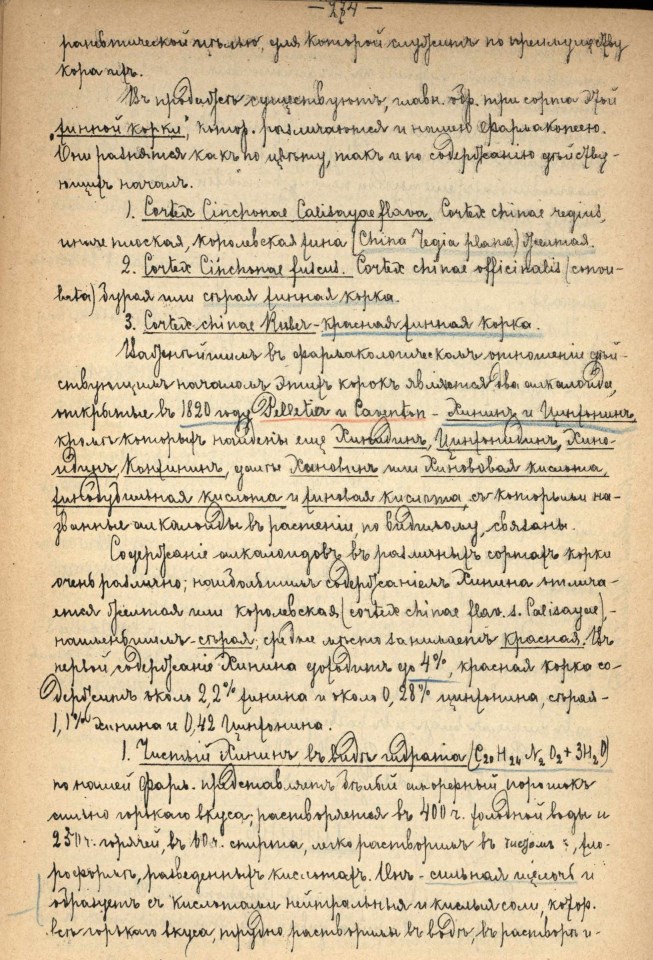 — 274 —
рапевтической цѣлью, для которой служитъ по преимуществу
кора ихъ.
Въ продажѣ существуютъ, главн. обр. три сорта этой
„хинной корки“, котор. различаются и нашею Фармакопеею.
Они разнятся какъ по цвѣту, такъ и по содержанію дѣйству-
ющихъ началъ.
1. Cortex Cinchonae Calisayae flava. Cortex chinae regius,
иначе плоская, королевская хина (China regia plana) желтая.
2. Cortex Cinchonae fuscus. Cortex chinae officinalis (convo-
luta) бурая или сѣрая хинная корка.
3. Cortex chinae Ruber - красная хинная корка.
Важнѣйшимъ въ фармакологическомъ отношеніи дѣй-
ствующимъ началомъ этихъ корокъ являются два алкалоида,
открытые въ 1820 году Pelletia и Caventon - Хининъ и Цинхонинъ,
кромѣ которыхъ найдены еще Хинидинъ, Цинхонидинъ, Хино-
идинъ, Конхининъ, далѣе Хиновинъ или Хинововая кислота,
хинодубильная кислота и хиновая кислота, съ которыми на-
званные алкалоиды въ растеніи, по видимому, связаны.
Содержаніе алкалоидовъ въ различныхъ сортахъ корки
очень различно; наибольшимъ содержаніемъ Хинина отлича-
ется желтая или королевская (cortex chinae flav. s. Calisayae) -
наименьшимъ - сѣрая, средне мѣсто занимаетъ красная. Въ
первой содержаніе Хинина доходитъ до 4%, красная корка со-
держитъ около 2,2% хинина и около 0,28% цинхонина, сѣрая -
1,1% хинина и 0,42 Цинхонина.
1. Чистый Хининъ въ видѣ гидрата (C20 H24 N2 O2 + 3H2O)
по нашей Фарм. представляетъ бѣлый аморфный порошокъ
сильно горькаго вкуса; растворяется въ 400 ч. холодной воды и
250 ч. горячей, въ 60 ч. спирта, легко растворимъ въ хло-
роформѣ, разведенныхъ кислотахъ. Онъ - сильная щелочь и
образуетъ съ кислотами нейтральныя и кислыя соли, котор.
всѣ горькаго вкуса, трудно растворимы въ водѣ, въ растворѣ и-